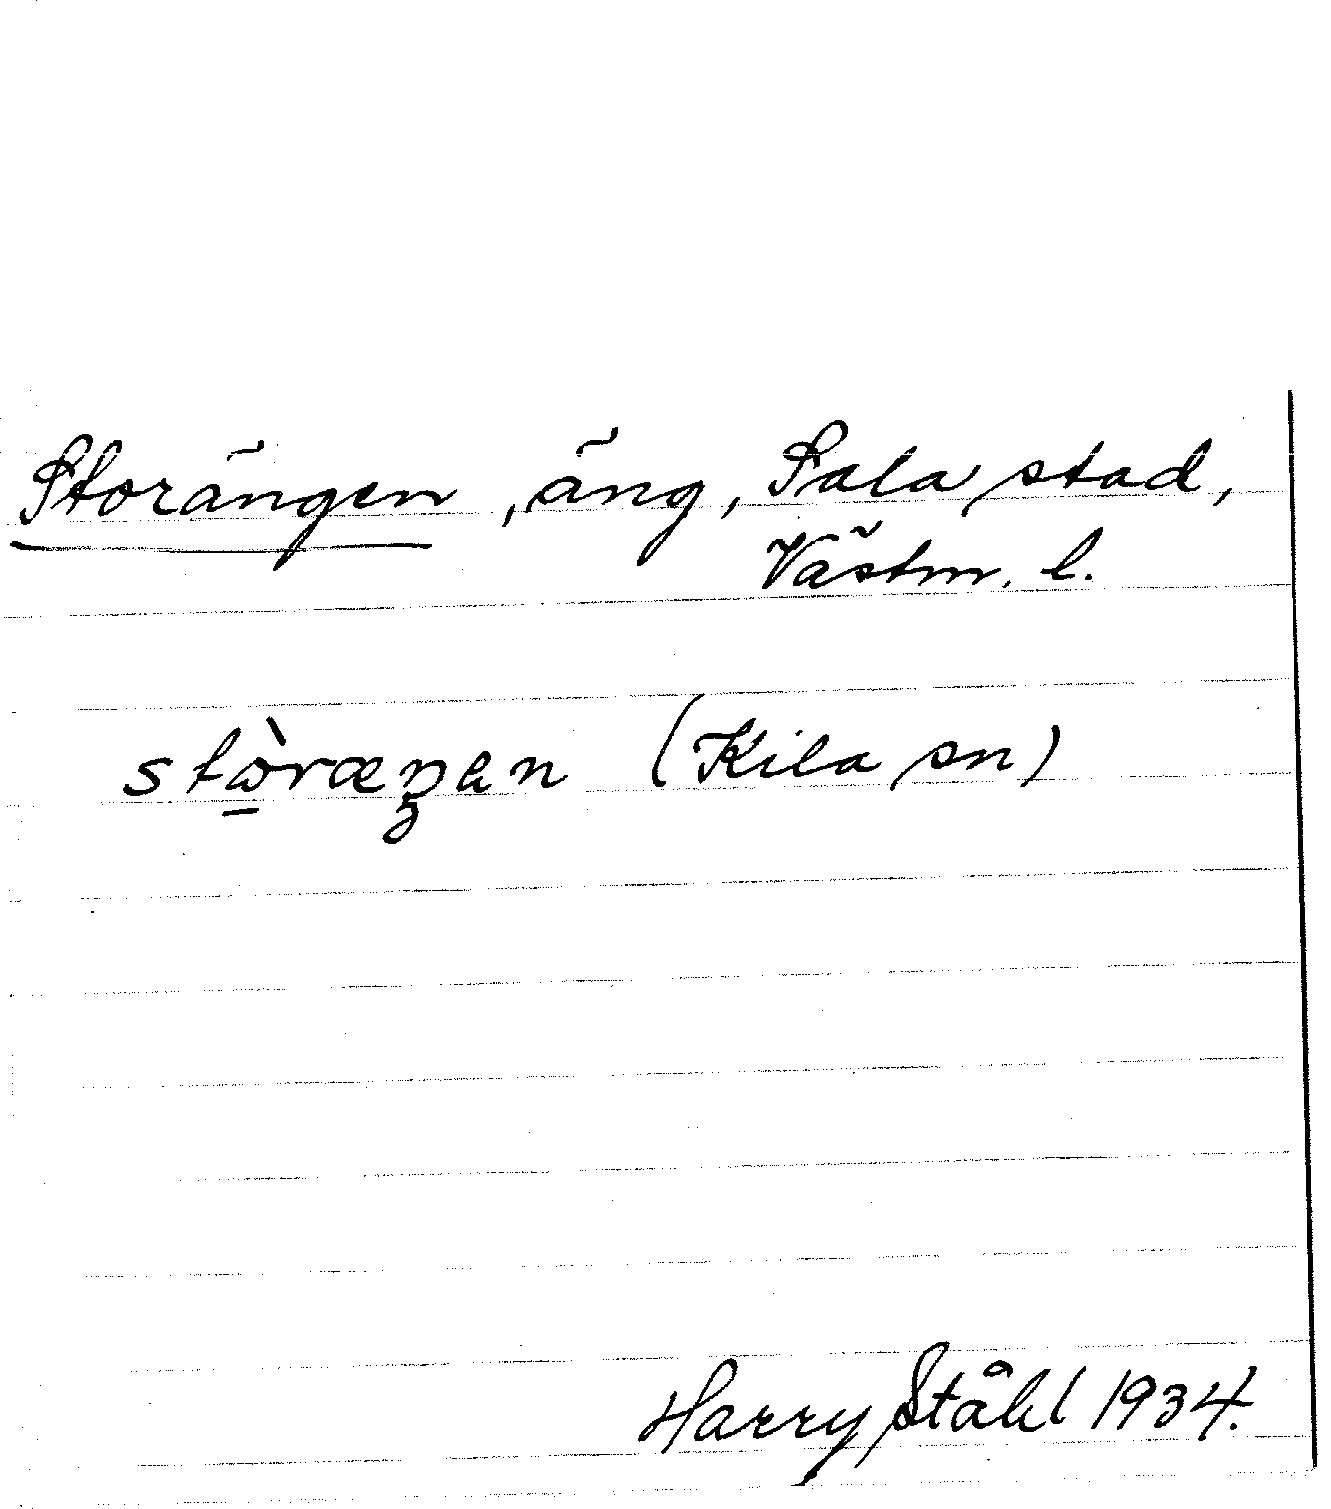 Storängen, äng, Sala stad,
Västm. l.
stὼ̲ræŋen (Kila sn)
Harry Ståhl 1934.